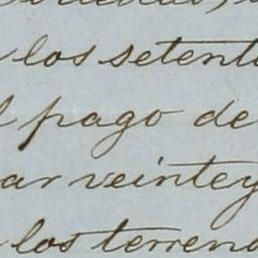 los setent
pago de
ar veintey
los terren